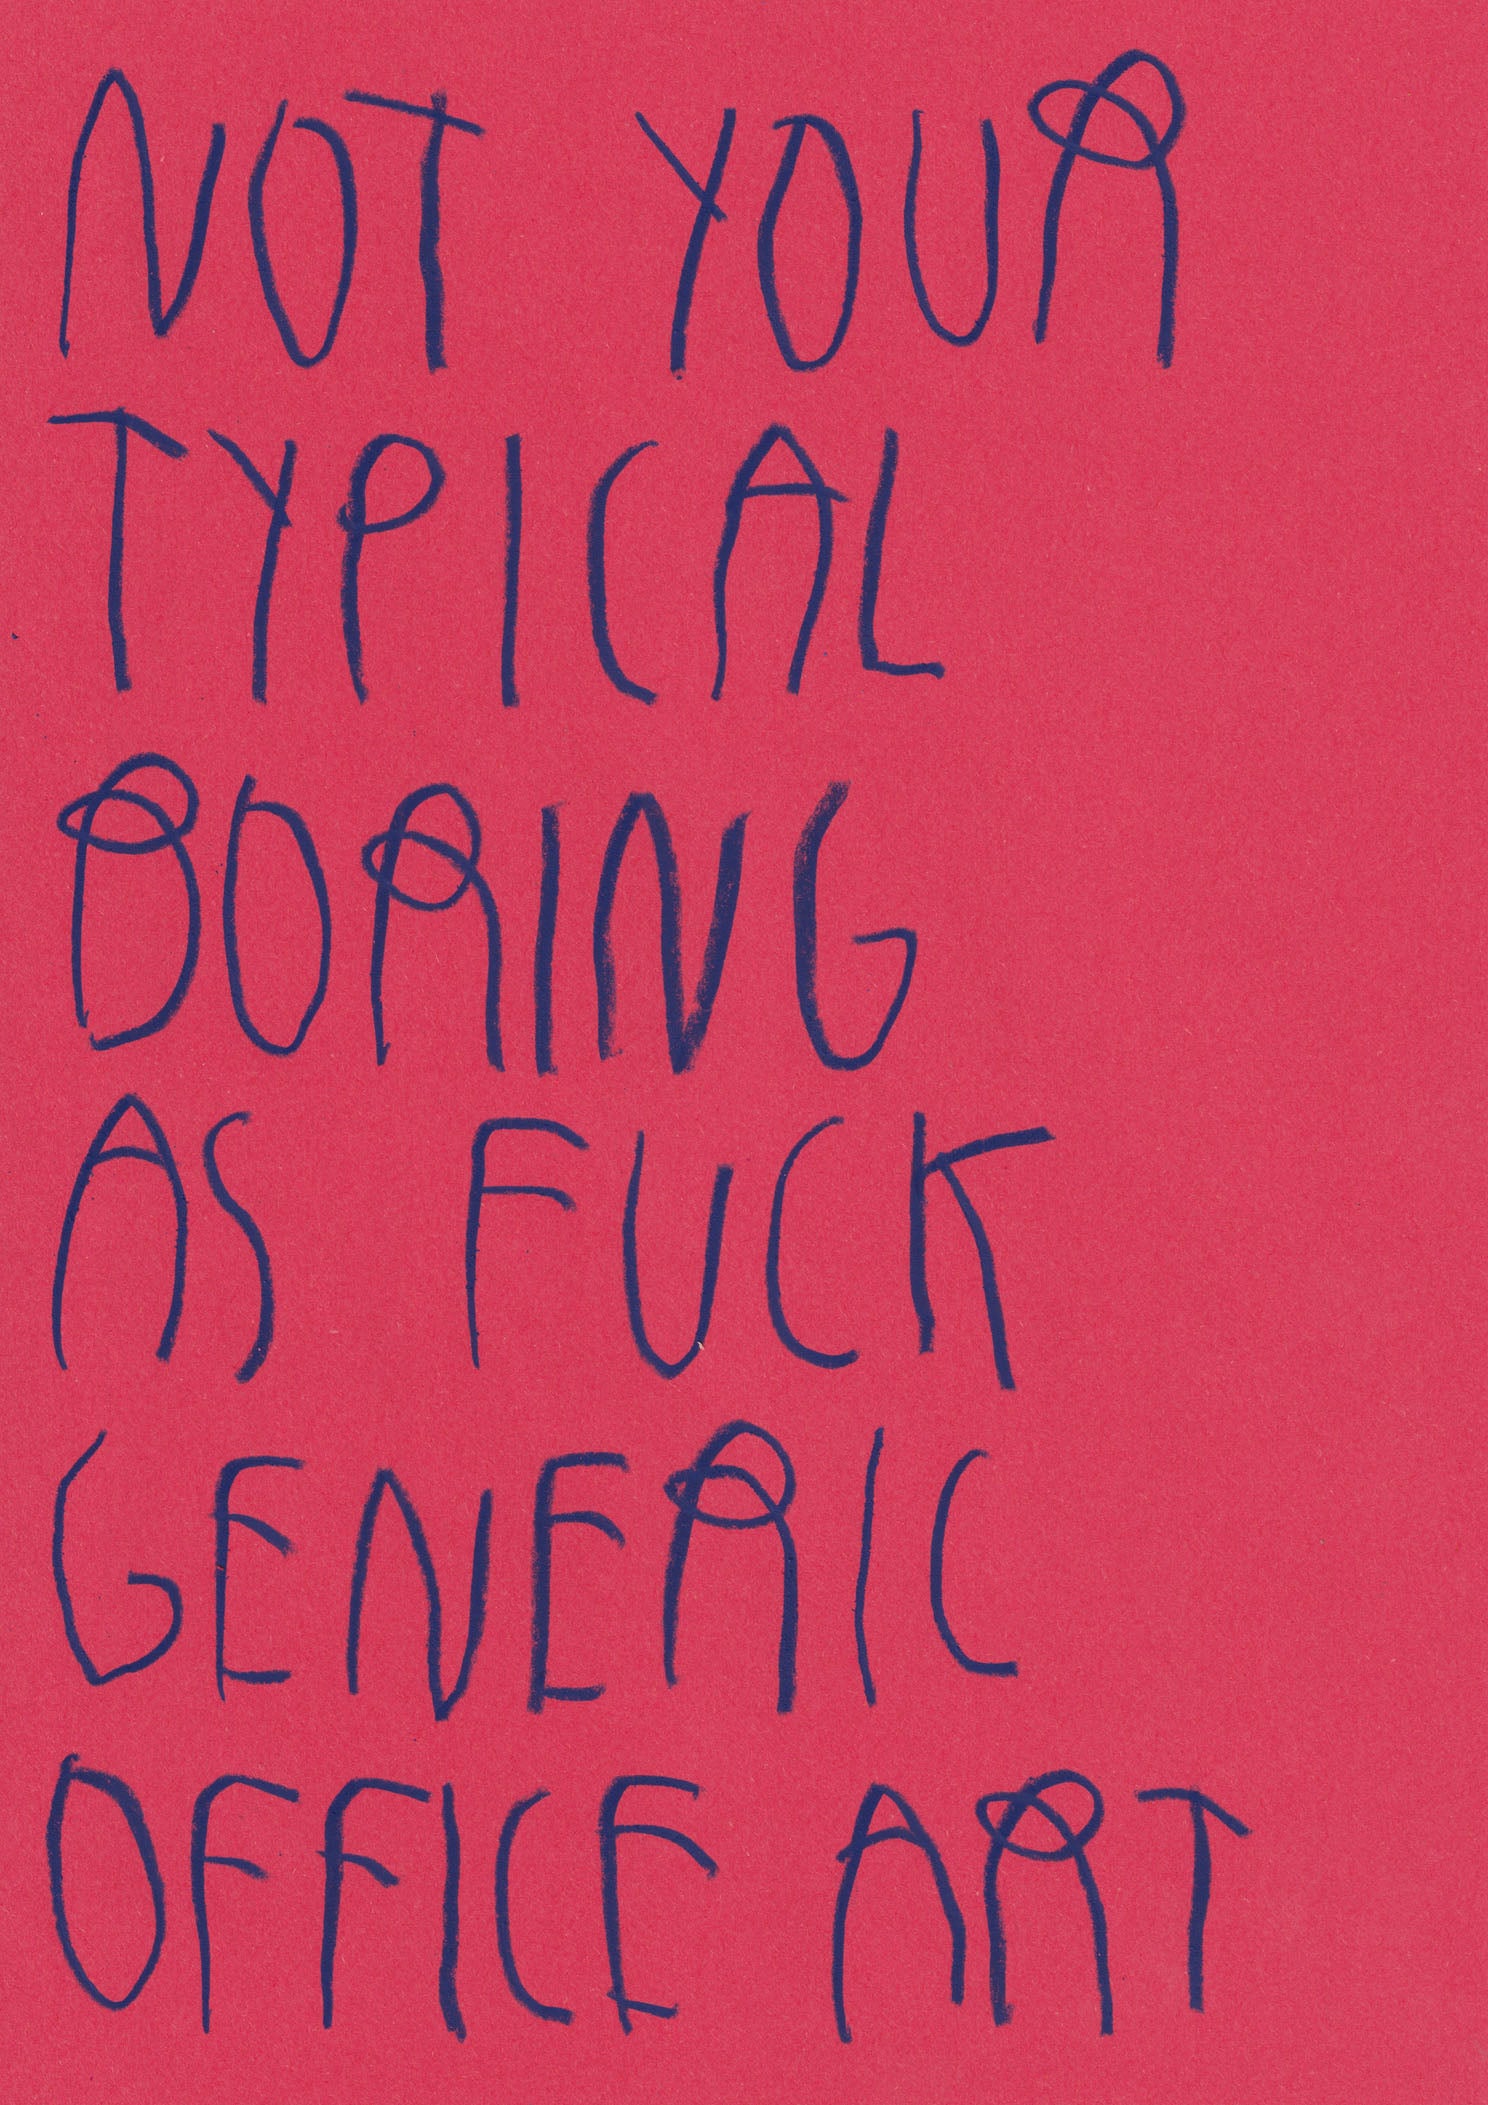 NOT YOUR
TYPICAL
BORING
AS FUCK
GENERIC
OFFICE ART